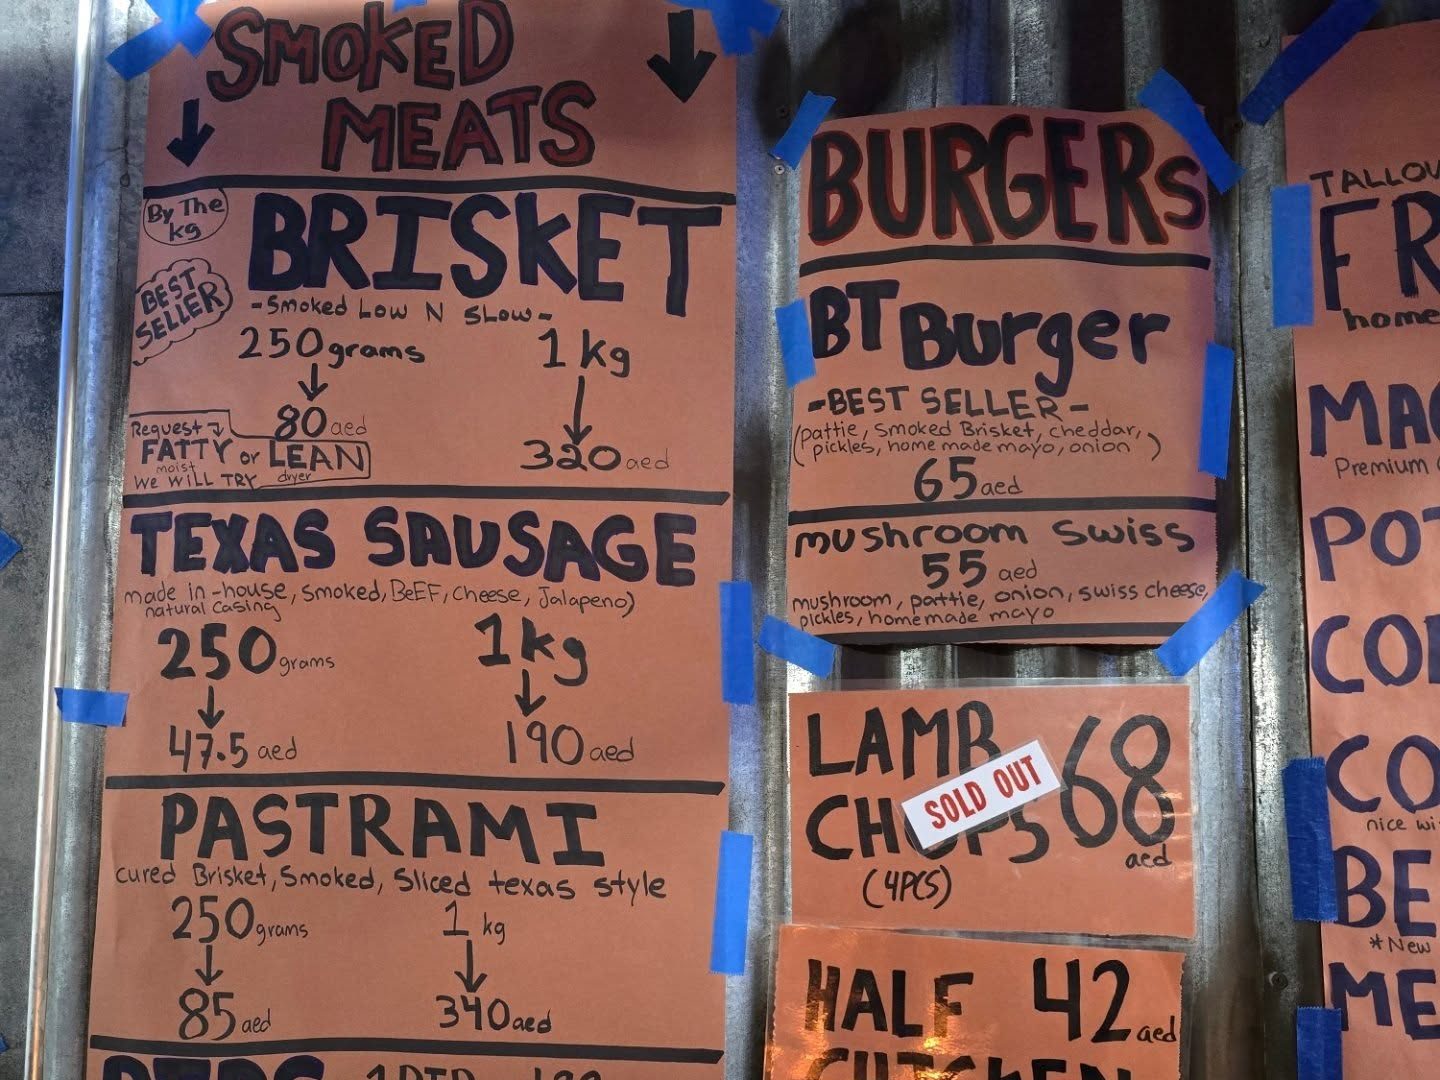 SMOKED
MEATS
By The
kg
BRISKET
BEST
SELLER
-Smoked Low N Slow-
250 grams 1 kg
80 aed 320 aed
Request
FATTY or LEAN
moist dryer
We Will TRY
TEXAS SAUSAGE
made in-house, smoked, BeEF, cheese, Jalapeno)
natural casing
250 grams 1kg
47.5 aed 190 aed
PASTRAMI
cured Brisket, Smoked, Sliced texas style
250 grams 1 kg
85 aed 340 aed
BURGERS
BT Burger
-BEST SELLER-
(pattie, Smoked Brisket, cheddar,
pickles, home made mayo, onion)
65 aed
mushroom Swiss
55 aed
mushroom, pattie, onion, swiss cheese,
pickles, homemade mayo
LAMB 68
CHOPS aed
SOLD OUT
(4PCS)
HALF 42 aed
CHICKEN
home
Premium
nice
*New